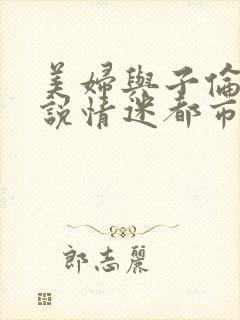 美婦與子倫
說情迷都市
郎志麗